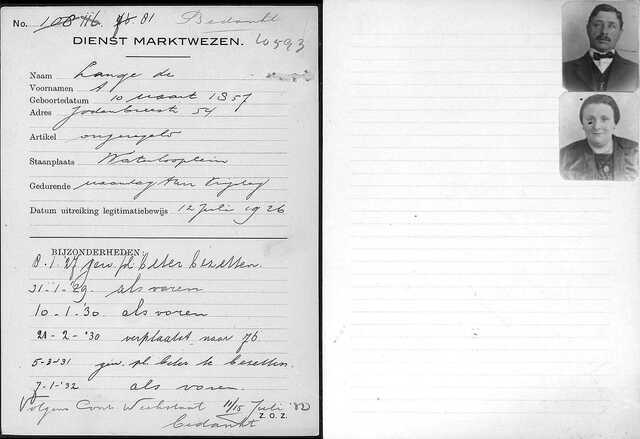 No. 108 116. 76 81 Bedankt
DIENST MARKTWEZEN. 60593
Naam Lange de
Voornamen A
Geboortedatum 10 Maart 1857
Adres Jodenbreestr 54
Artikel ongeregeld
Staanplaats Waterlooplein
Gedurende Maandag t/m Vrijdag
Datum uitreiking legitimatiebewijs 12 Juli 1926
BIJZONDERHEDEN:
8-1-'27 gew. pl. beter bezetten.
31-1-'29. als voren
10-1-'30. als voren
21-2-'30 verplaatst naar 76
5-2-'31 gew. pl. beter te bezetten.
7-1-'32 als voren.
Volgens Contr. Weekstaat 11/15 Juli '32
bedankt Z. O. Z.